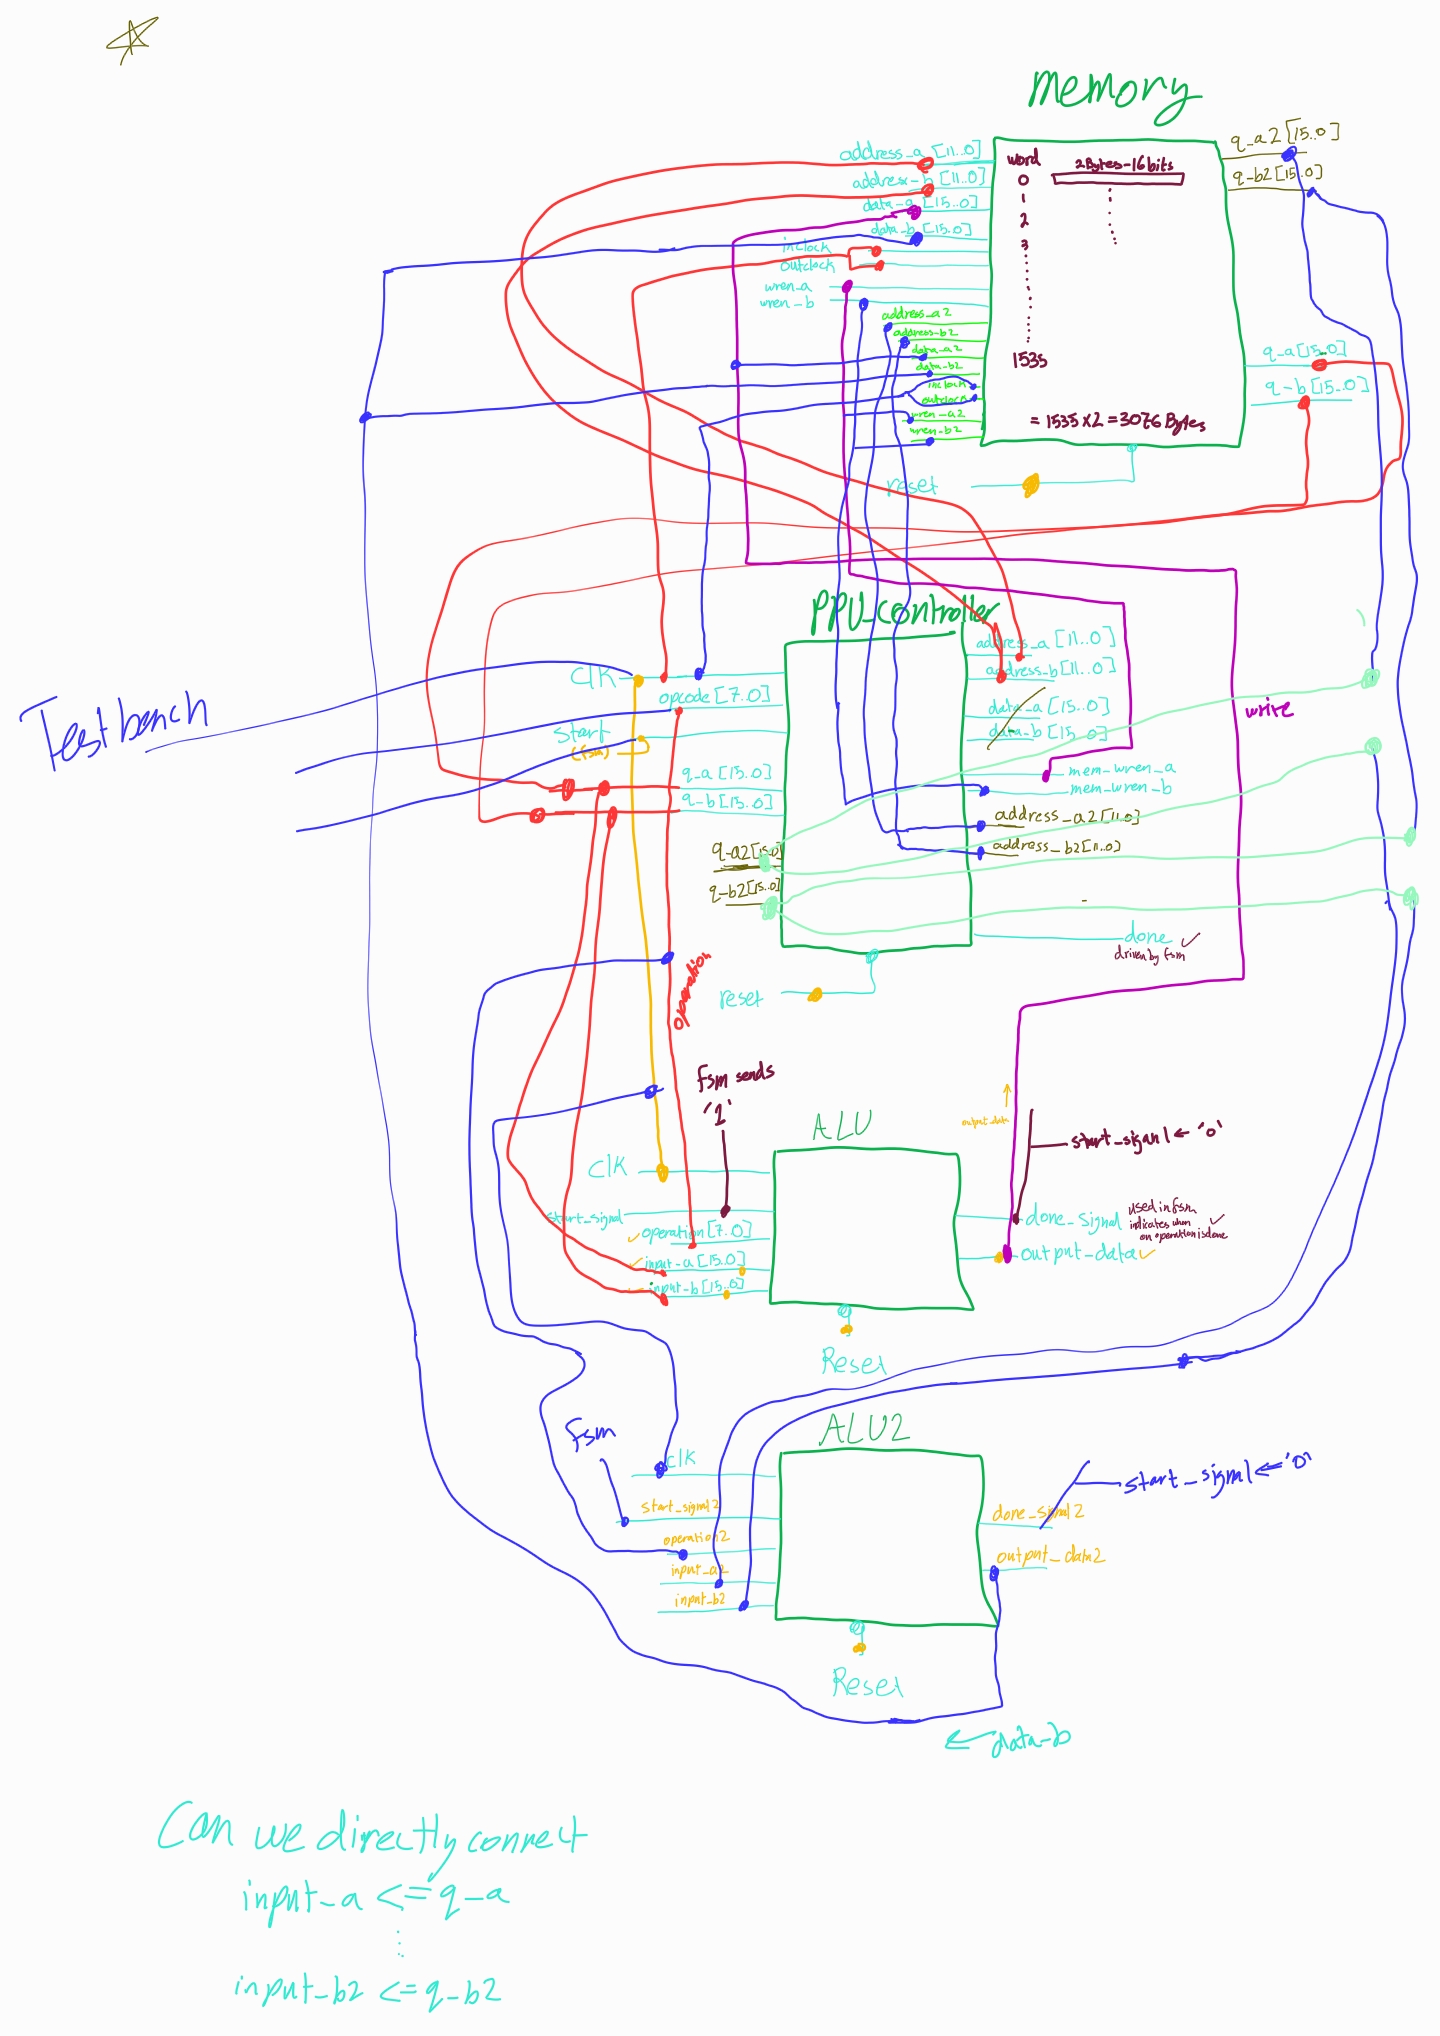 memory
address_a [11..0]
address-b [11..0]
data-a [15..0]
data_b [15..0]
inclock
outclock
wren_a
wren_b
address_a2
address-b2
data_a2
data-b2
inclock
outclock
wren-a2
wren-b2
word
0
1
2
3
1535
2Bytes-16bits
= 1535 x 2 = 3076 Bytes
q_a2 [15..0]
q-b2 [15..0]
q_a [15..0]
q-b [15..0]
reset
PPU_controller
Testbench
clk
opcode [7..0]
start
(fsm)
q_a [15..0]
q-b [15..0]
q-a2 [15..0]
q-b2 [15..0]
address_a [11..0]
address_b [11..0]
data_a [15..0]
data_b [15..0]
mem_wren_a
mem_wren_b
address_a2 [11..0]
address_b2 [11..0]
done
driven by fsm
reset
write
operation
fsm sends
'1'
ALU
output_data
start_signal <- '0'
clk
start_signal
operation [7..0]
input_a [15..0]
input-b [15..0]
done_signal
used in fsm
indicates when
an operation is done
output_data
Reset
ALU2
fsm
clk
start_signal2
operation2
input_a2
input_b2
done_signal2
output_data2
start_signal <= '0'
Reset
<- data_b
Can we directly connect
input_a <= q_a
input_b2 <= q_b2